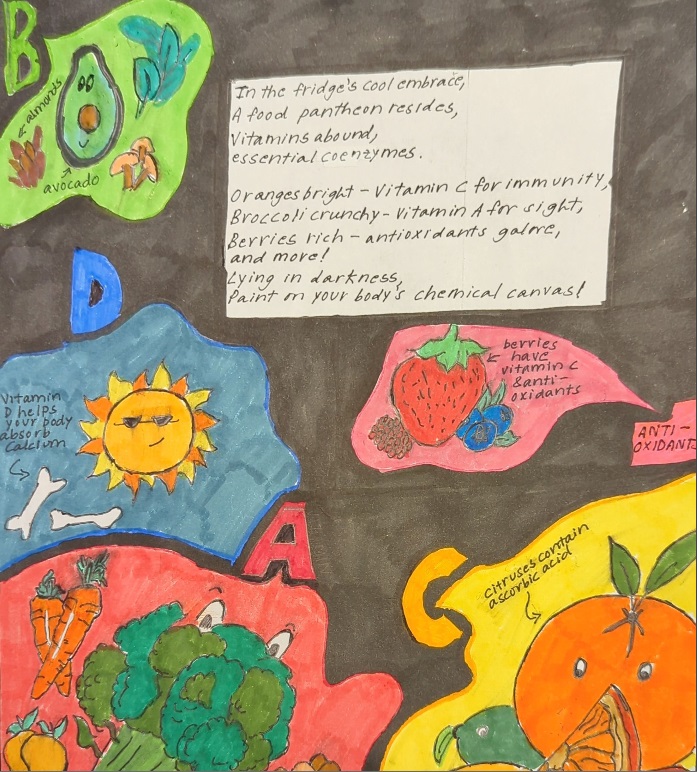 B
almonds
avocado
In the fridge's cool embrace,
A food pantheon resides,
Vitamins abound,
essential coenzymes.
Oranges bright - Vitamin C for immunity,
Broccoli crunchy - Vitamin A for sight,
Berries rich - antioxidants galore,
and more!
Lying in darkness,
Paint on your body's chemical canvas!
D
Vitamin
D helps
your body
absorb
Calcium
berries
have
vitamin C
& anti-
oxidants
ANTI-
OXIDANTS
A
C
citruses contain
ascorbic acid